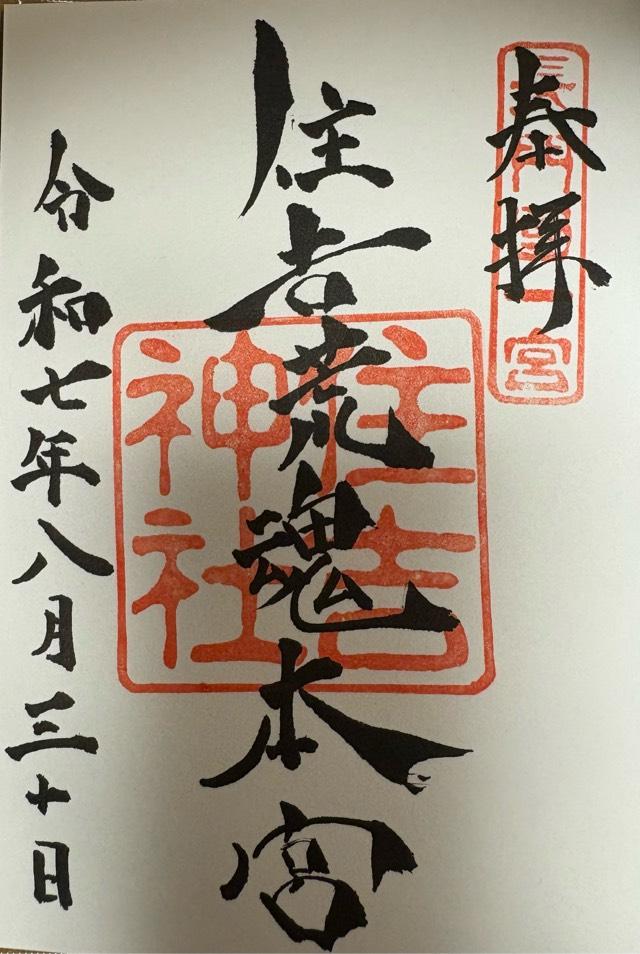 奉拝
長門國一宮
住吉荒魂本宮
住吉
神社
令和七年八月三十日